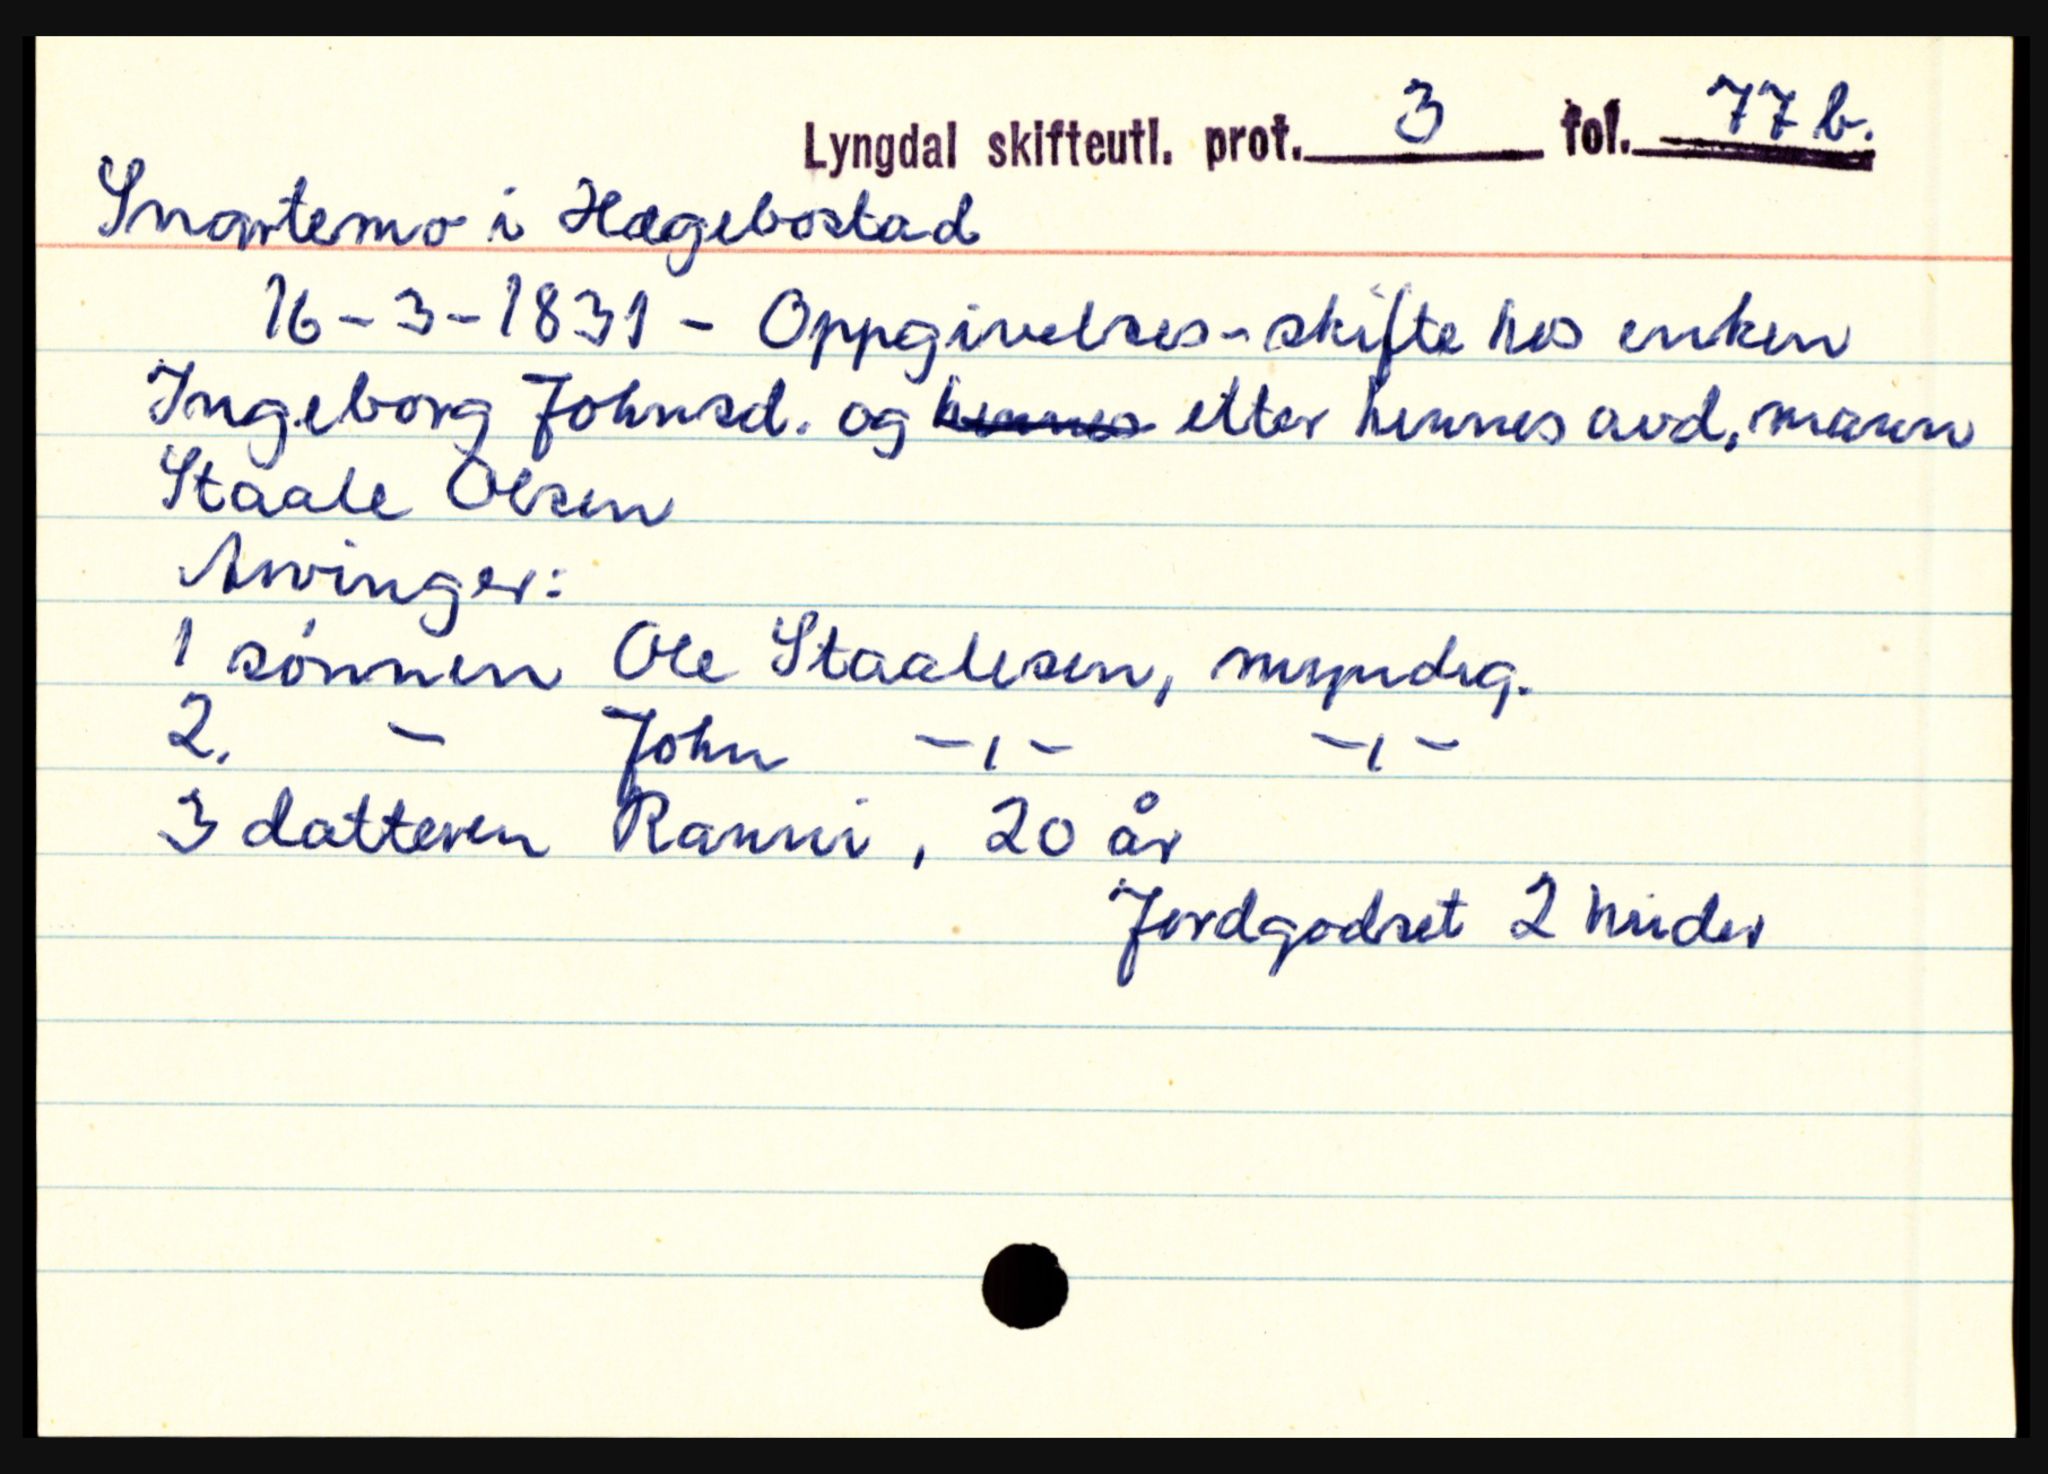 Lyngdal skifteutl. prot. 3 fol. 77 b.
Snartemo i Hægebostad
16-3-1831 - Oppgivelses-skifte hos enken
Ingeborg Johnsd. og hennes etter hennes avd. mann
Staale Olsen
Arvinger:
1 sønnen Ole Staalesen, myndig.
2. - John -"- -"-
3 datteren Ranni, 20 år
Jordgodset 2 huder